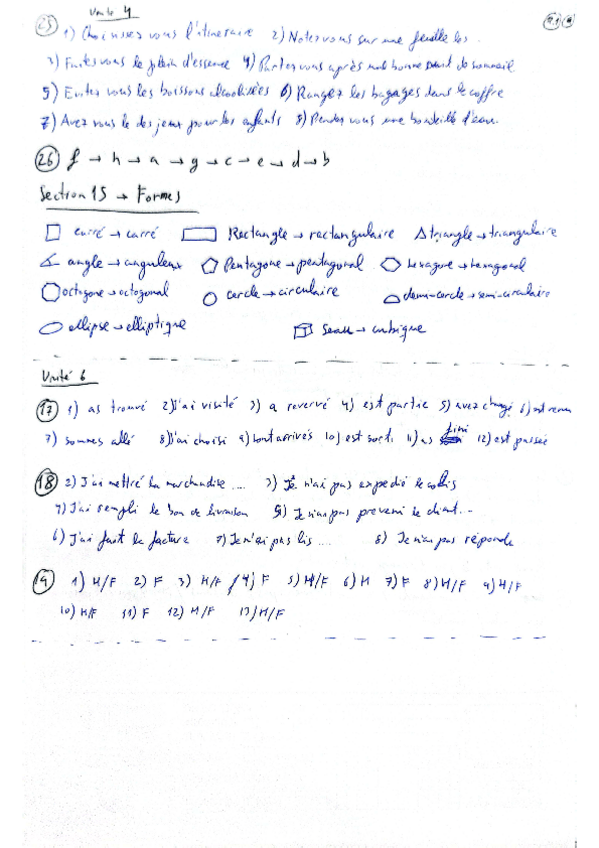 Unité 4
25) 1) Choisissez vous l'itineraire 2) Notez vous sur une feuille les .
3) Faites vous le plein d'essence 4) Partez vous après une bonne nuit de sommeil
5) Evitez vous les boissons alcoolisées 6) Rangez les bagages dans le coffre
7) Avez vous le des jeux pour les enfants 8) Prendez vous une bouteille d'eau.
26) f → h → a → g → c → e → d → b
Section 15 → Formes
carré → carré Rectangle → rectangulaire triangle → triangulaire
angle → anguleux Pentagone → pentagonal hexagone → hexagonal
octogone → octogonal cercle → circulaire demi-cercle → semi-circulaire
ellipse → elliptique → cubique
Unité 6
17) 1) as trouvé 2) J'ai visité 3) a reservé 4) est partie 5) avez changé 6)
7) sommes allé 8) J'ai choisi 9) sont arrivés 10) est sorti 11) as fini 12) est passée
18) 2) J'ai mettré la marchandise .... 3) Je n'ai pas expedié le colis
4) J'ai rempli le bon de livraison 5) Je n'ai pas prevenu le client...
6) J'ai fait la facture 7) Je n'ai pas lis .... 8) Je n'ai pas réponde
19) 1) H/F 2) F 3) H/F 4) F 5) H/F 6) H 7) F 8) H/F 9) H/F
10) H/F 11) F 12) H/F 13) H/F